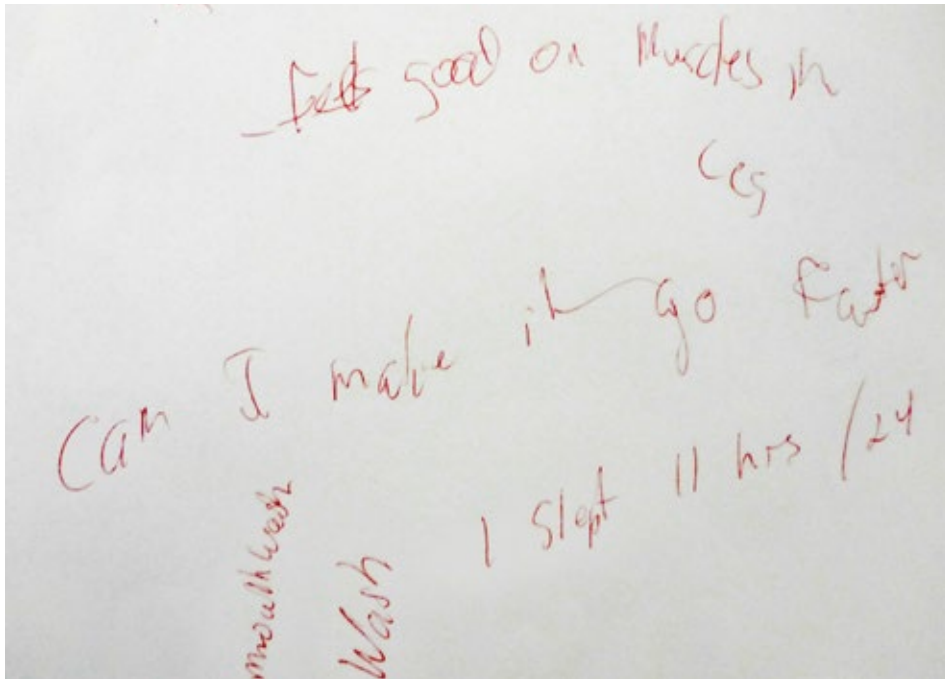 - feels good on Muscles in
Leg
Can I make it go Faster
I Slept 11 hrs /24
mouthwash
Wash